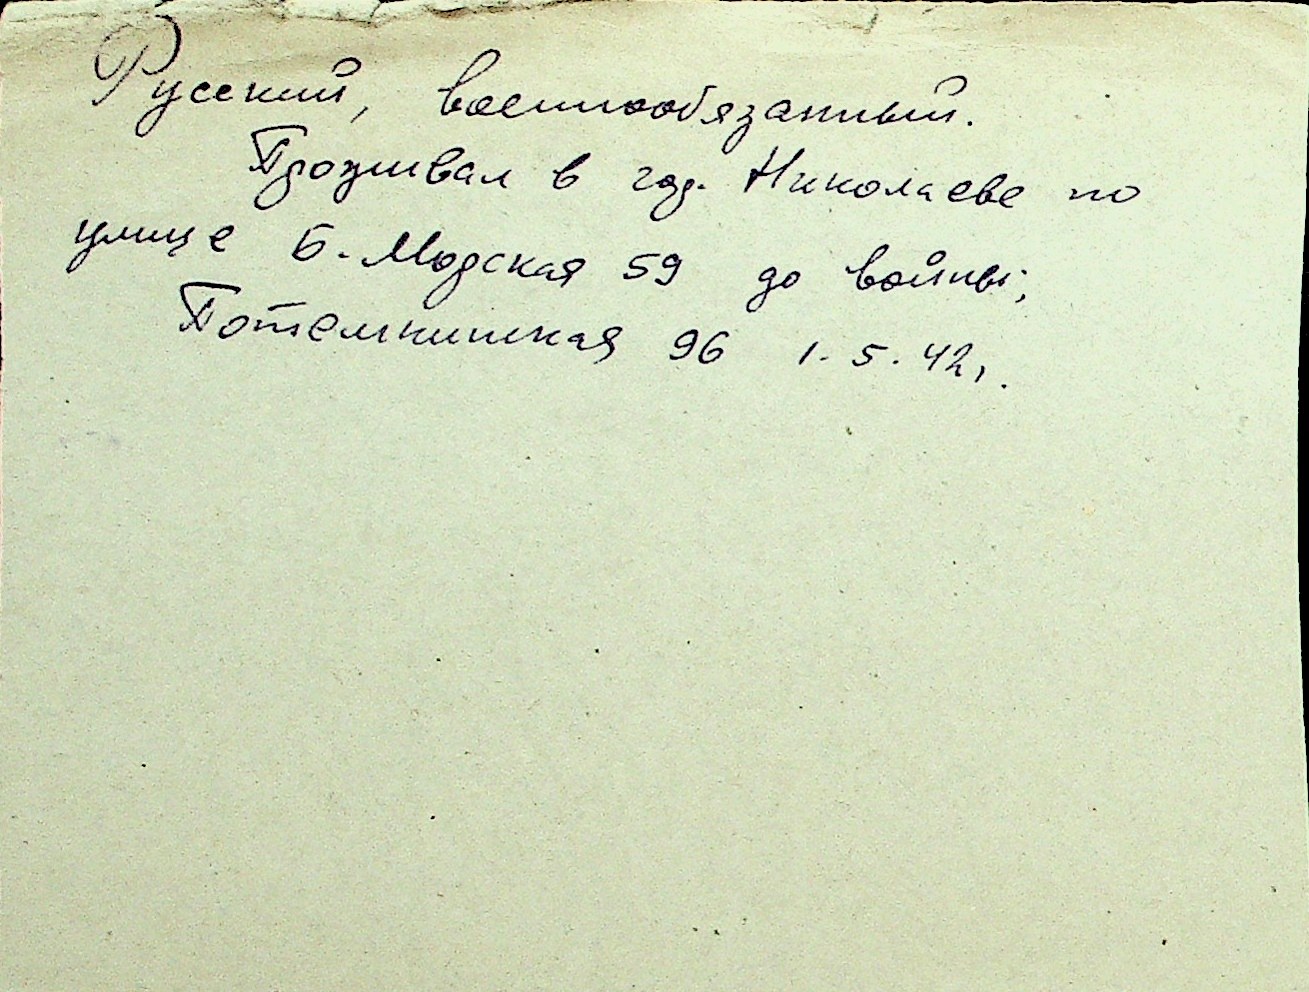 Русский, военнообязанный.
Проживал в гор. Николаеве по
улице Б. Морская 59 до войны;
Потемкинская 96 1.5.42г.